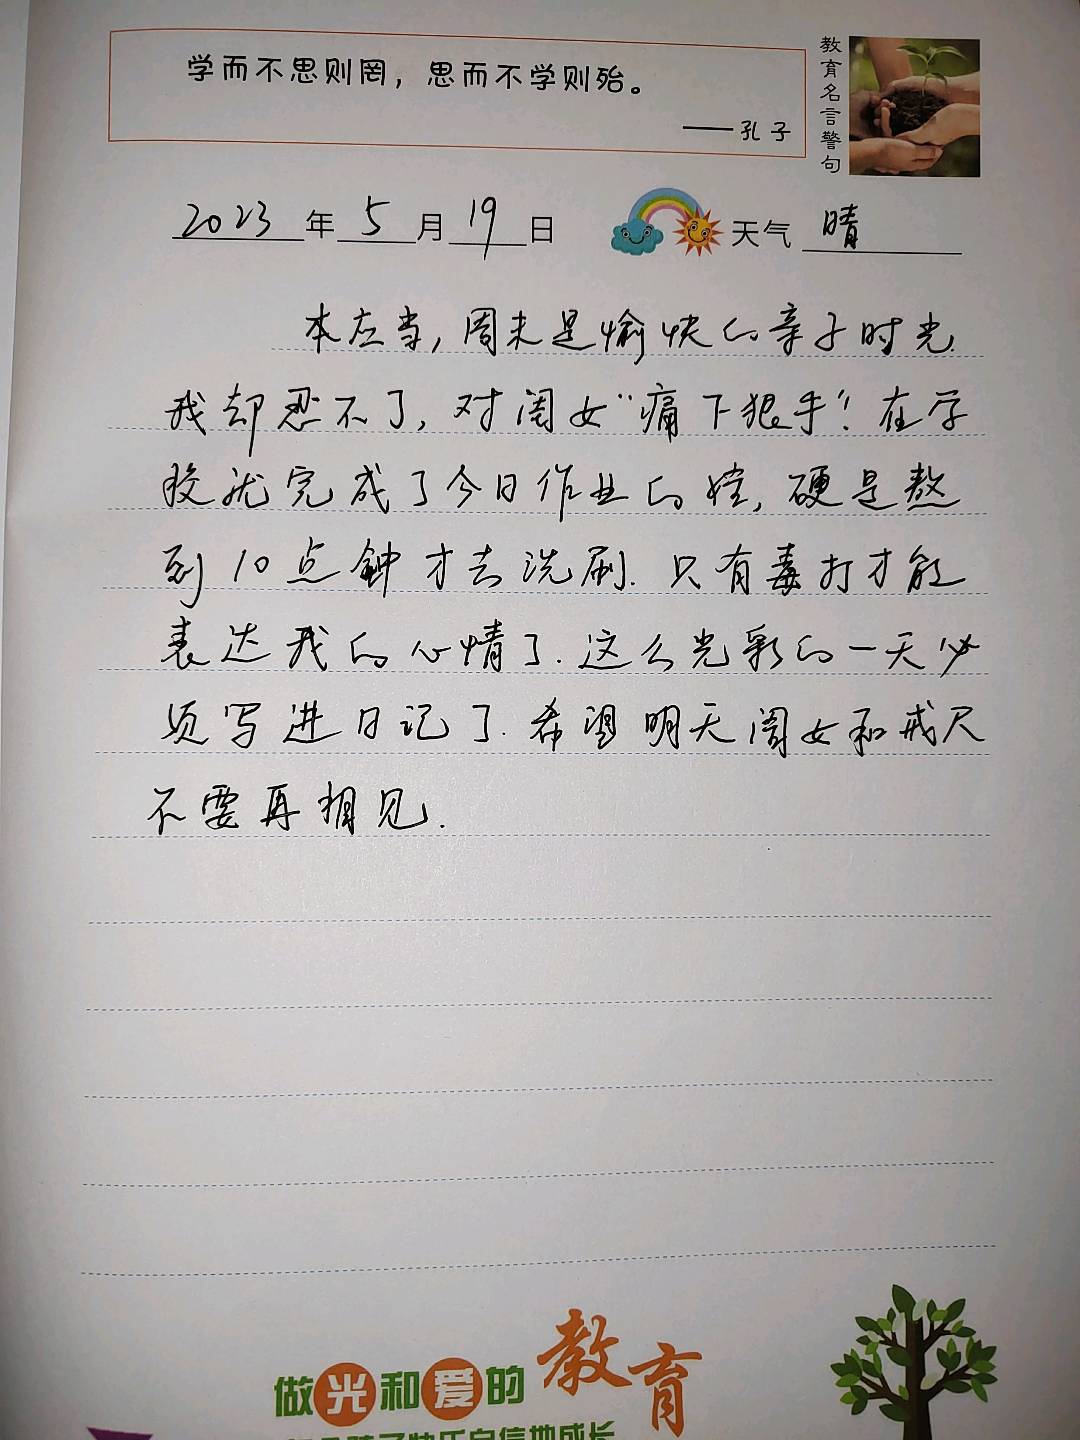 学而不思则罔，思而不学则殆。
——孔子
教育名言警句
2023年5月19日 天气 晴
本应当,周末是愉快的亲子时光.
我却忍不了,对闺女"痛下狠手"!在学
校就完成了今日作业的娃,硬是熬
到10点钟才去洗刷.只有毒打才能
表达我的心情了.这么光彩的一天必
须写进日记了.希望明天闺女和戒尺
不要再相见.
做光和爱的教育
孩子快乐自信地成长